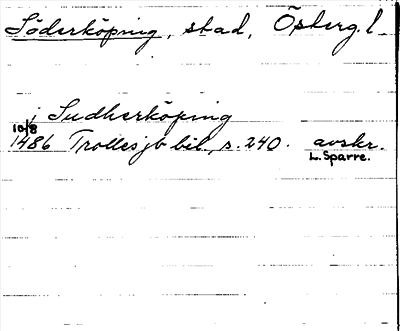 Söderköping, stad, Östberg. l.
j Sudherköping
10/8
1486 Trolles jb bil., s. 240. avskr.
L. Sparre.